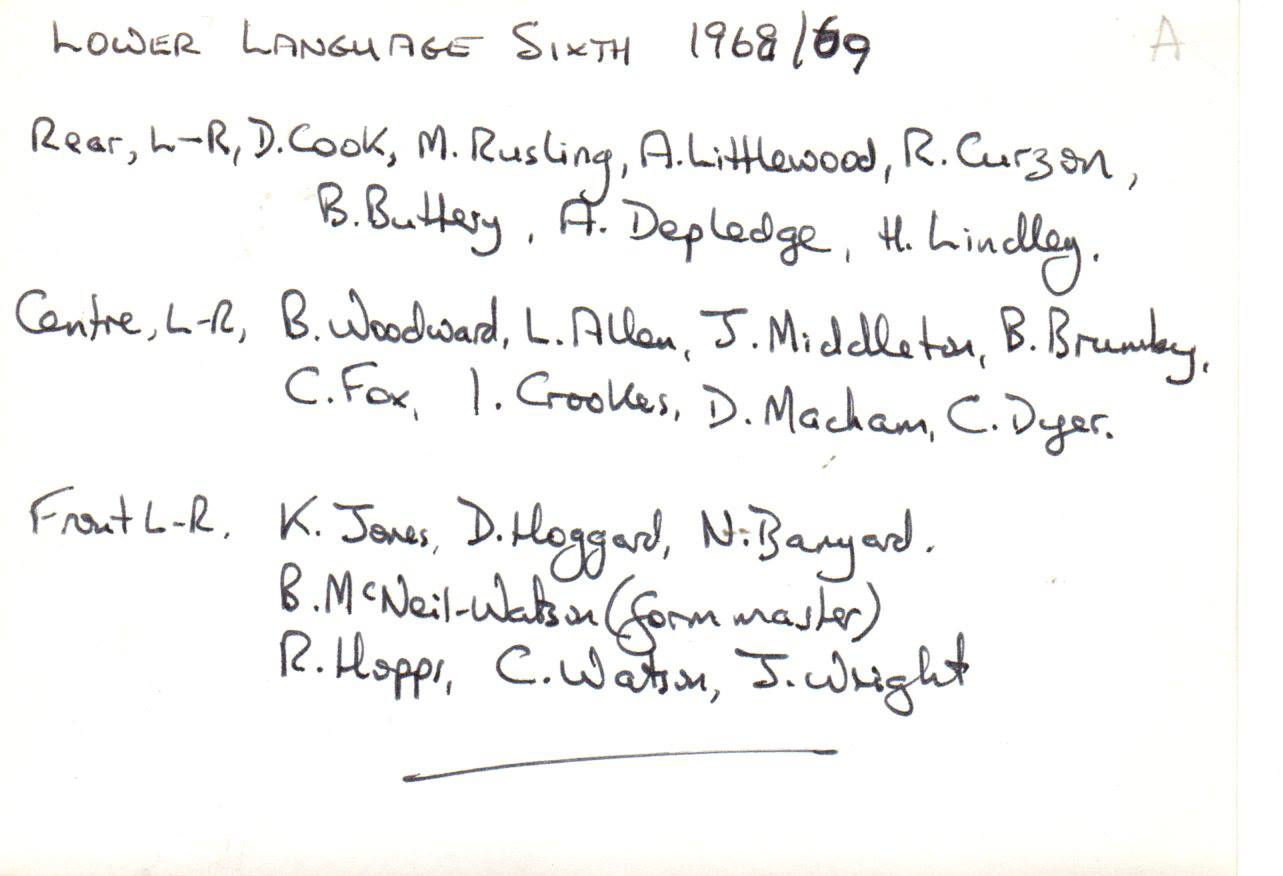 LOWER LANGUAGE SIXTH 1968/69 A
Rear, L-R, D. Cook, M. Rusling, A. Littlewood, R. Curzon,
B. Buttery, A. Depledge, H. Lindley.
Centre, L-R, B. Woodward, L. Allen, J. Middleton, B. Brumby,
C. Fox, I. Crookes, D. Macham, C. Dyer.
Front L-R. K. Jones, D. Hoggard, N. Banyard.
B. McNeil-Watson (form master)
R. Hopps, C. Watson, J. Wright